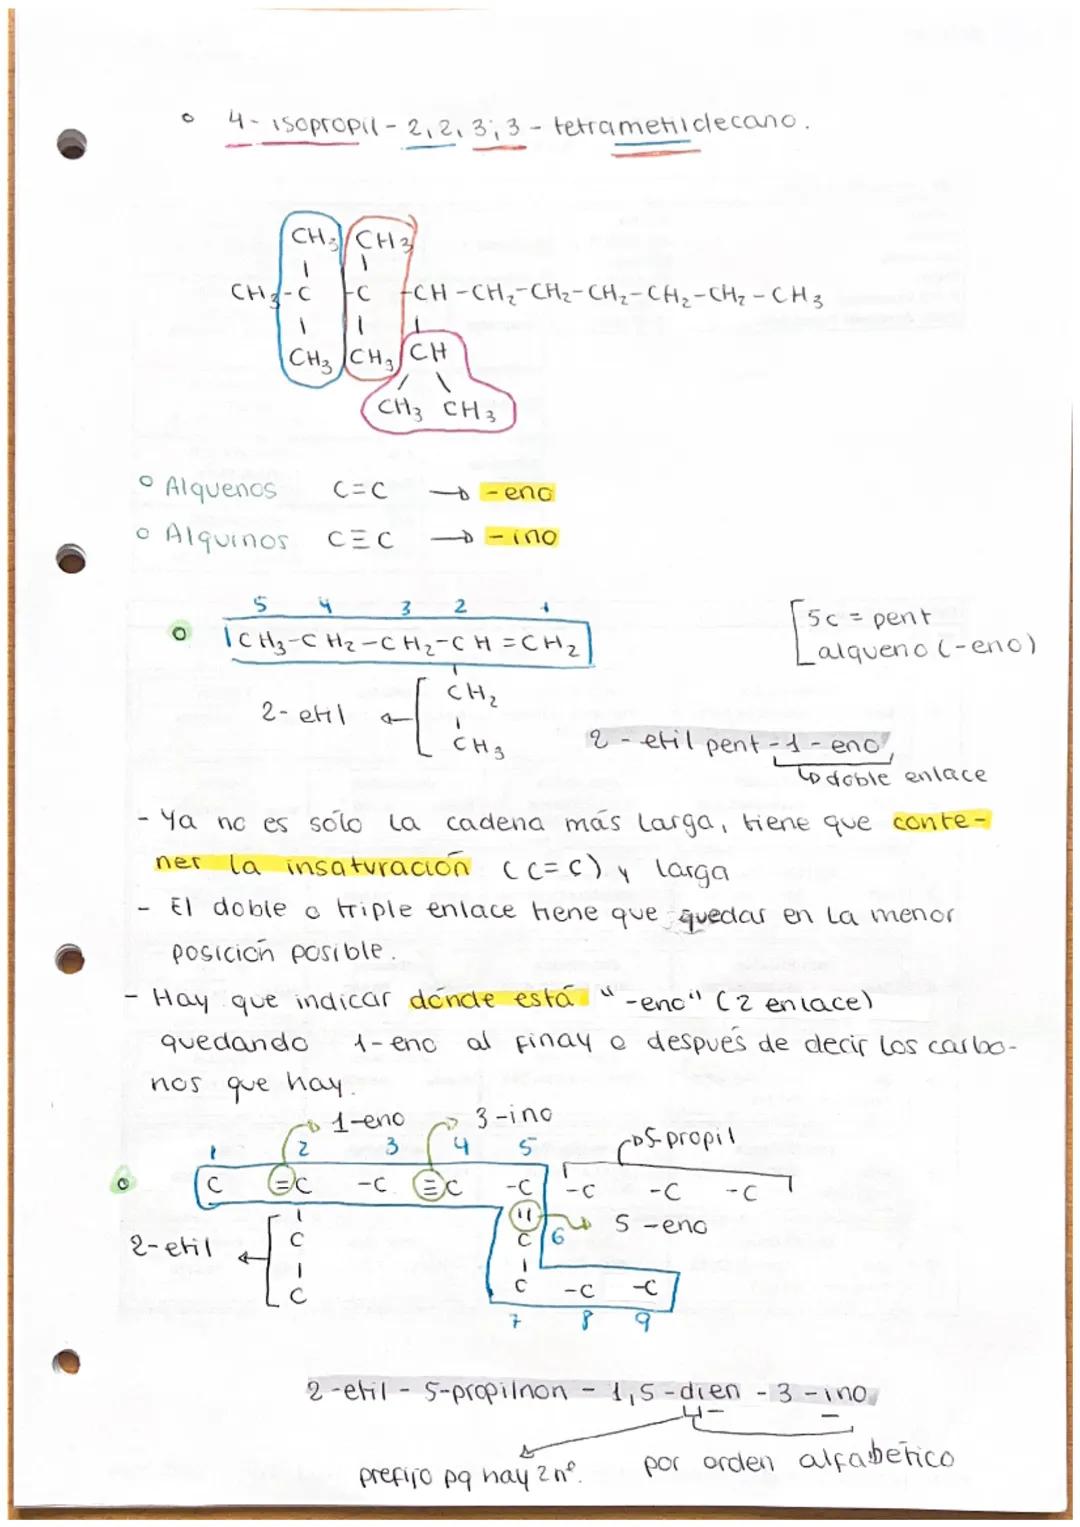 4- isopropil - 2,2,3,3 - tetrametildecano.
CH3 CH3
CH3-C -C -CH-CH2-CH2-CH2-CH2-CH2-CH3
CH3 CH3 CH
CH3 CH3
Alquenos C=C → -eno
Alquinos C≡C → -ino
5 4 3 2 1
CH3-CH2-CH2-CH=CH2
5c = pent
alqueno (-eno)
CH2
2-etil ←
CH3
2 - etil pent-1-eno
↳ doble enlace
- Ya no es sólo la cadena más larga, tiene que conte-
ner la insaturación (C=C) y larga
- El doble o triple enlace tiene que quedar en la menor
posición posible.
- Hay que indicar dónde está "-eno" (2 enlace)
quedando 1-eno al finay o después de decir los carbo-
nos que hay.
1-eno 3-ino
1 2 3 4 5 → 5-propil
C =C -C ≡C -C -C -C -C
= → 5-eno
C C 6
2-etil ←
C C -C -C
7 8 9
2-etil - 5-propilnon - 1,5-dien -3-ino
prefijo pq hay 2 nº. por orden alfabético